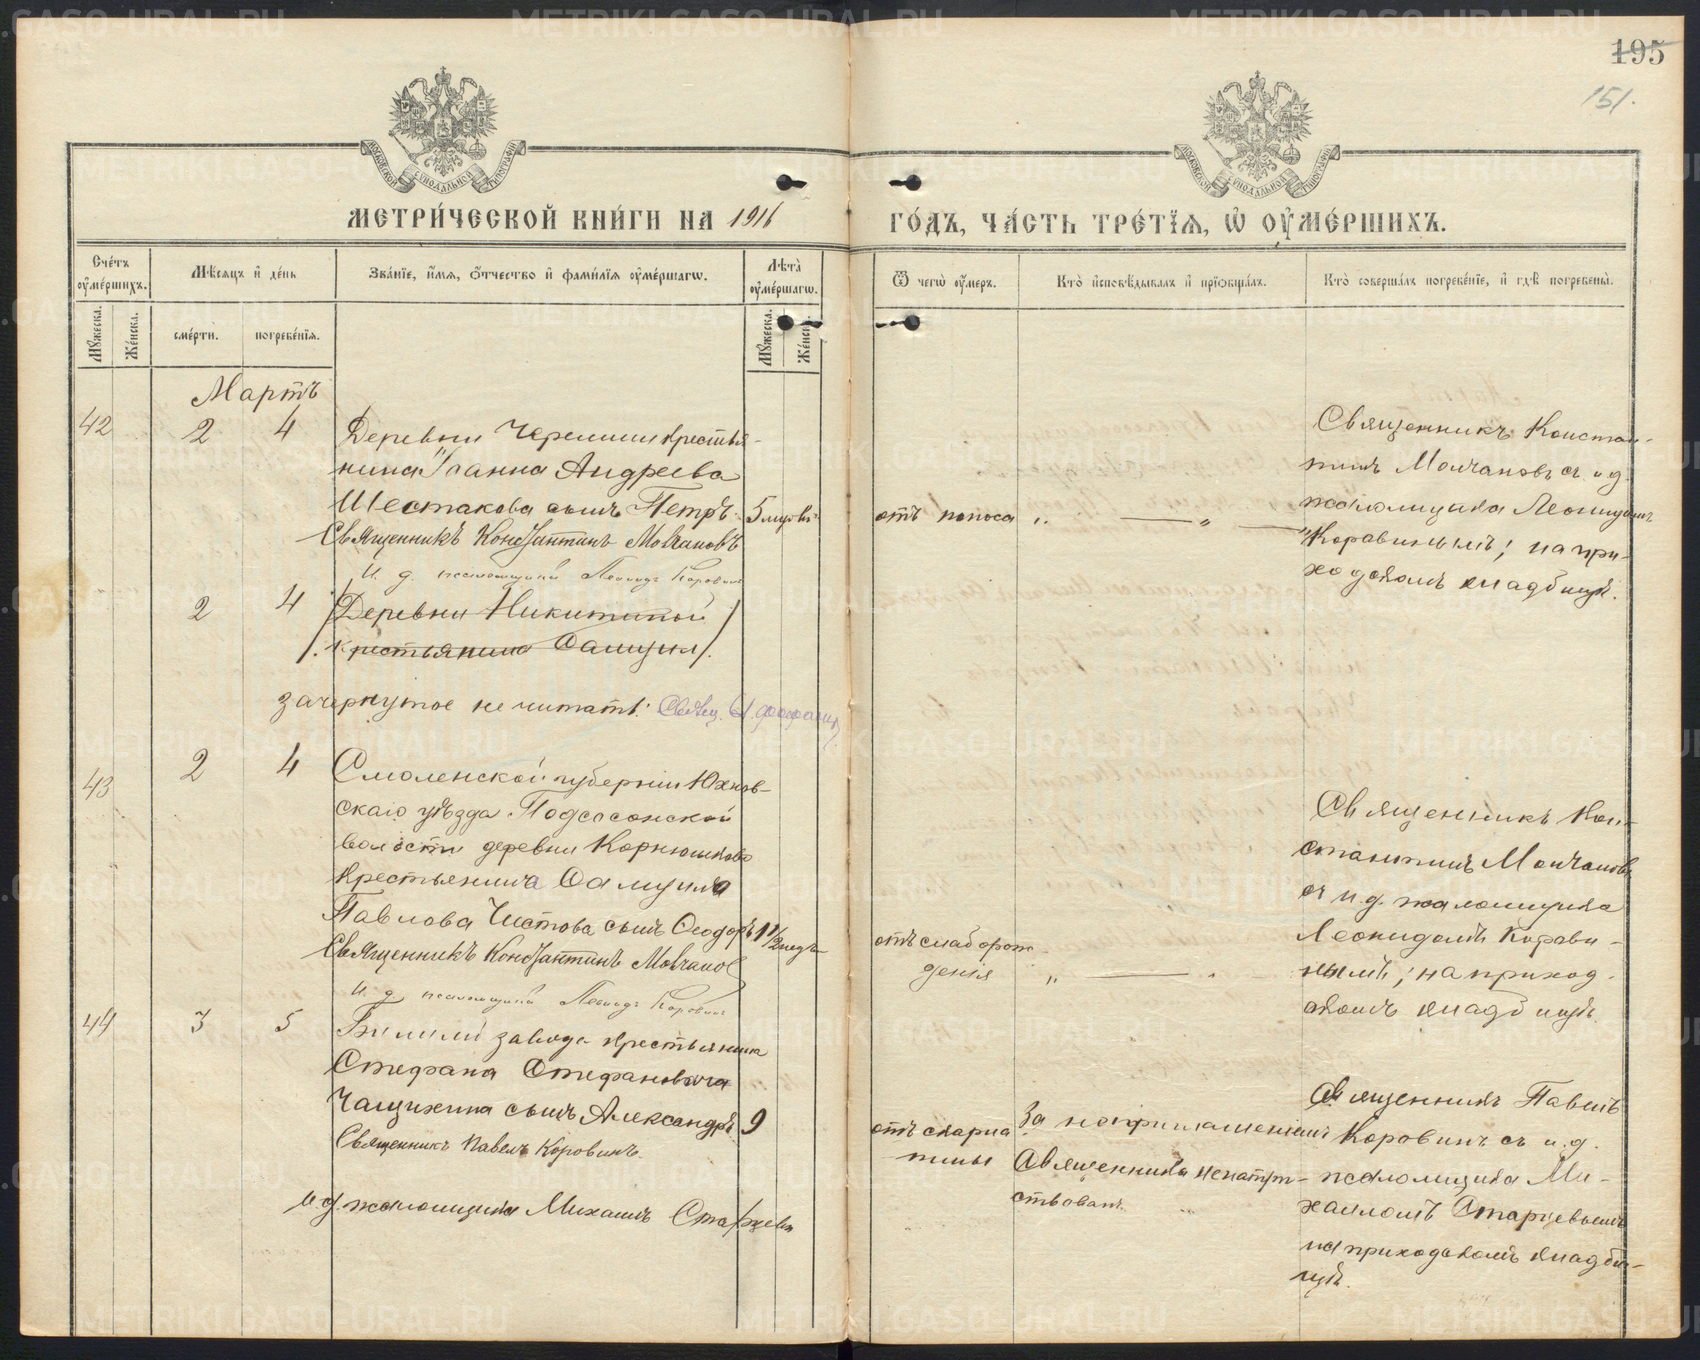 195
151.
МОСКОВСКОЙ СѴНОДАЛЬНОЙ ТИПОГРАФІИ
МОСКОВСКОЙ СѴНОДАЛЬНОЙ ТИПОГРАФІИ
МЕТРИ́ЧЕСКОЙ КНИ́ГИ НА 1916
ГО́ДЪ, ЧА́СТЬ ТРЕ́ТЇѦ, Ѡ҆ ОУ҆МЕ́РШИХЪ.
Сче́тъ оу҆ме́ршихъ.
Мꙋ́жеска.
Же́нска.
Мѣ́сѧцъ и҆ де́нь
сме́рти.
погребе́нїѧ.
Зва́нїе, и҆́мѧ, ѻ҆́тчество и҆ фами́лїѧ оу҆ме́ршагѡ.
Лѣ́та оу҆ме́ршагѡ.
Мꙋ́жеска.
Же́нск.
Ѿ чегѡ̀ оу҆́меръ.
Кто̀ и҆сповѣ́дывалъ и҆ прїѡбща́лъ.
Кто̀ соверша́лъ погребе́нїе, и҆ гдѣ̀ погребены̀.
Мартъ
42
2
4
Деревни Черемши крестья-
нина Іоанна Андреева
Шестакова сынъ Петръ.
5 мцовъ
Священникъ Константинъ Молчановъ
И. д. псаломщика Леонидъ Коровинъ
отъ поноса
„ — „ —
Священникъ Констан-
тинъ Молчановъ съ и. д.
псаломщика Леонидомъ
Коравинымъ; на при-
ходскомъ кладбищѣ.
2
4
Деревни Никитиной
крестьянина Самуил
зачеркнутое не читать:
43
2
4
Смоленской губерніи Юхнов-
скаго уѣзда Подсосонской
волости деревни Корнюшково
крестьянина Самуила
Павлова Чистова сынъ Ѳеодоръ
1½ недѣ
Священникъ Константинъ Молчанов
И. д. псаломщика Леонидъ Коровинъ
отъ слаборож-
денія
„ — „
Священникъ Кон-
стантинъ Молчановъ
съ и. д. псаломщика
Леонидомъ Корави-
нымъ; на приход-
скомъ кладбищѣ.
44
3
5
завода крестьянина
Стефана Стефановича
Чащихина сынъ Александръ
9
Священникъ Павелъ Коровинъ.
и. д. псаломщика Михаилъ Старцевъ
отъ скарла-
тины
За неприглашеніемъ
Священника не напут-
ствованъ.
Священникъ Павелъ
Коровинъ съ и. д.
псаломщика Ми-
хаиломъ Старцевымъ
на приходскомъ кладби-
щѣ.